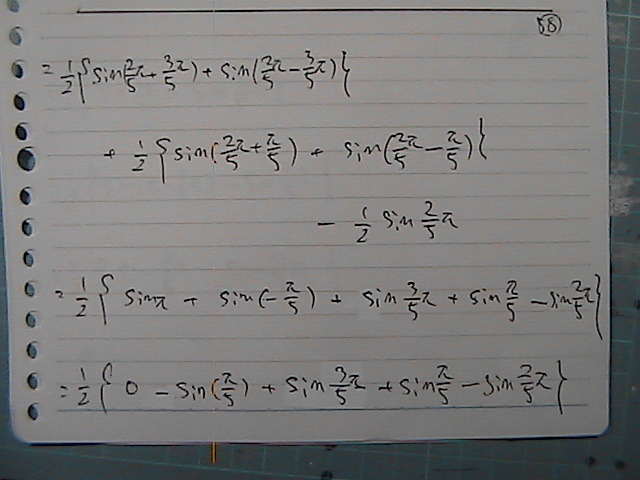 58
= 1/2 { sin(2/5 π + 3/5 π) + sin(2/5 π − 3/5 π) }
+ 1/2 { sin(2π/5 + π/5) + sin(2π/5 − π/5) }
− 1/2 sin 2/5 π
= 1/2 { sin π + sin(−π/5) + sin 3/5 π + sin π/5 − sin 2/5 π }
= 1/2 { 0 − sin(π/5) + sin 3/5 π + sin π/5 − sin 2/5 π }